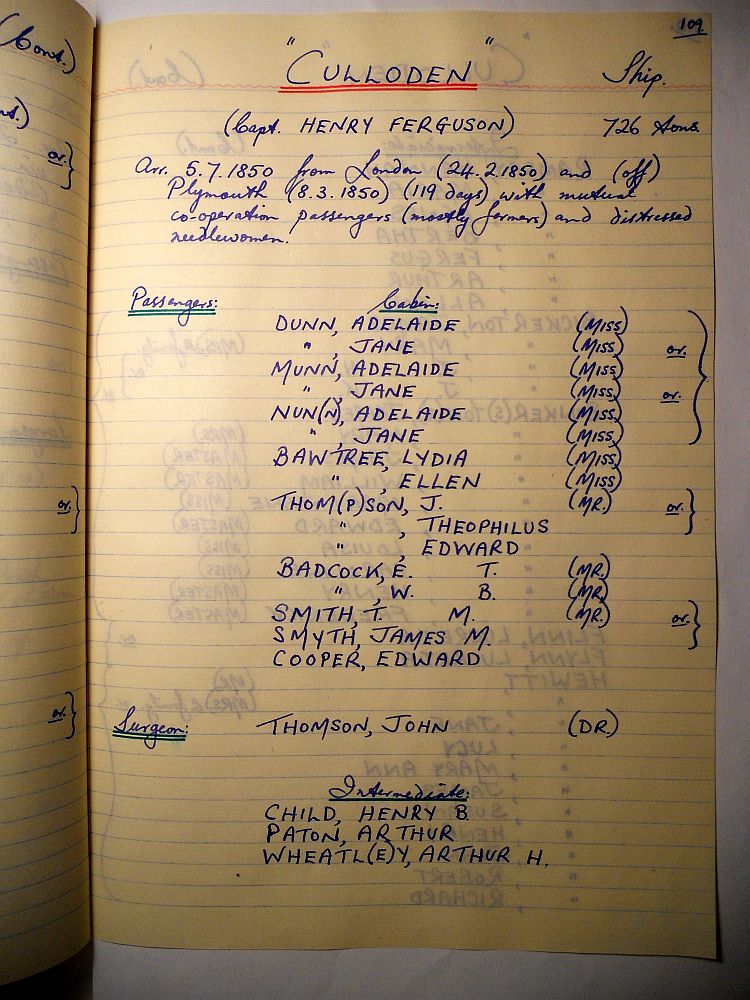 109.
"CULLODEN" Ship.
(Capt. HENRY FERGUSON) 726 tons.
Arr. 5.7.1850 from London (24.2.1850) and (off)
Plymouth (8.3.1850) (119 days) with mutual
co-operation passengers (mostly farmers) and distressed
needlewomen.
Passengers: Cabin:
DUNN, ADELAIDE (MISS)
" , JANE (MISS) or.
MUNN, ADELAIDE (MISS)
" , JANE (MISS) or.
NUN(N), ADELAIDE (MISS)
" , JANE (MISS)
BAWTREE, LYDIA (MISS)
" , ELLEN (MISS)
THOM(P)SON, J. (MR.) or.
" , THEOPHILUS
" , EDWARD
BADCOCK, E. T. (MR.)
" , W. B. (MR.)
SMITH, T. M. (MR.) or.
SMYTH, JAMES M.
COOPER, EDWARD
Surgeon: THOMSON, JOHN (DR.)
Intermediate:
CHILD, HENRY B.
PATON, ARTHUR
WHEATL(E)Y, ARTHUR H.
(Cont.)
or.
or.
or.